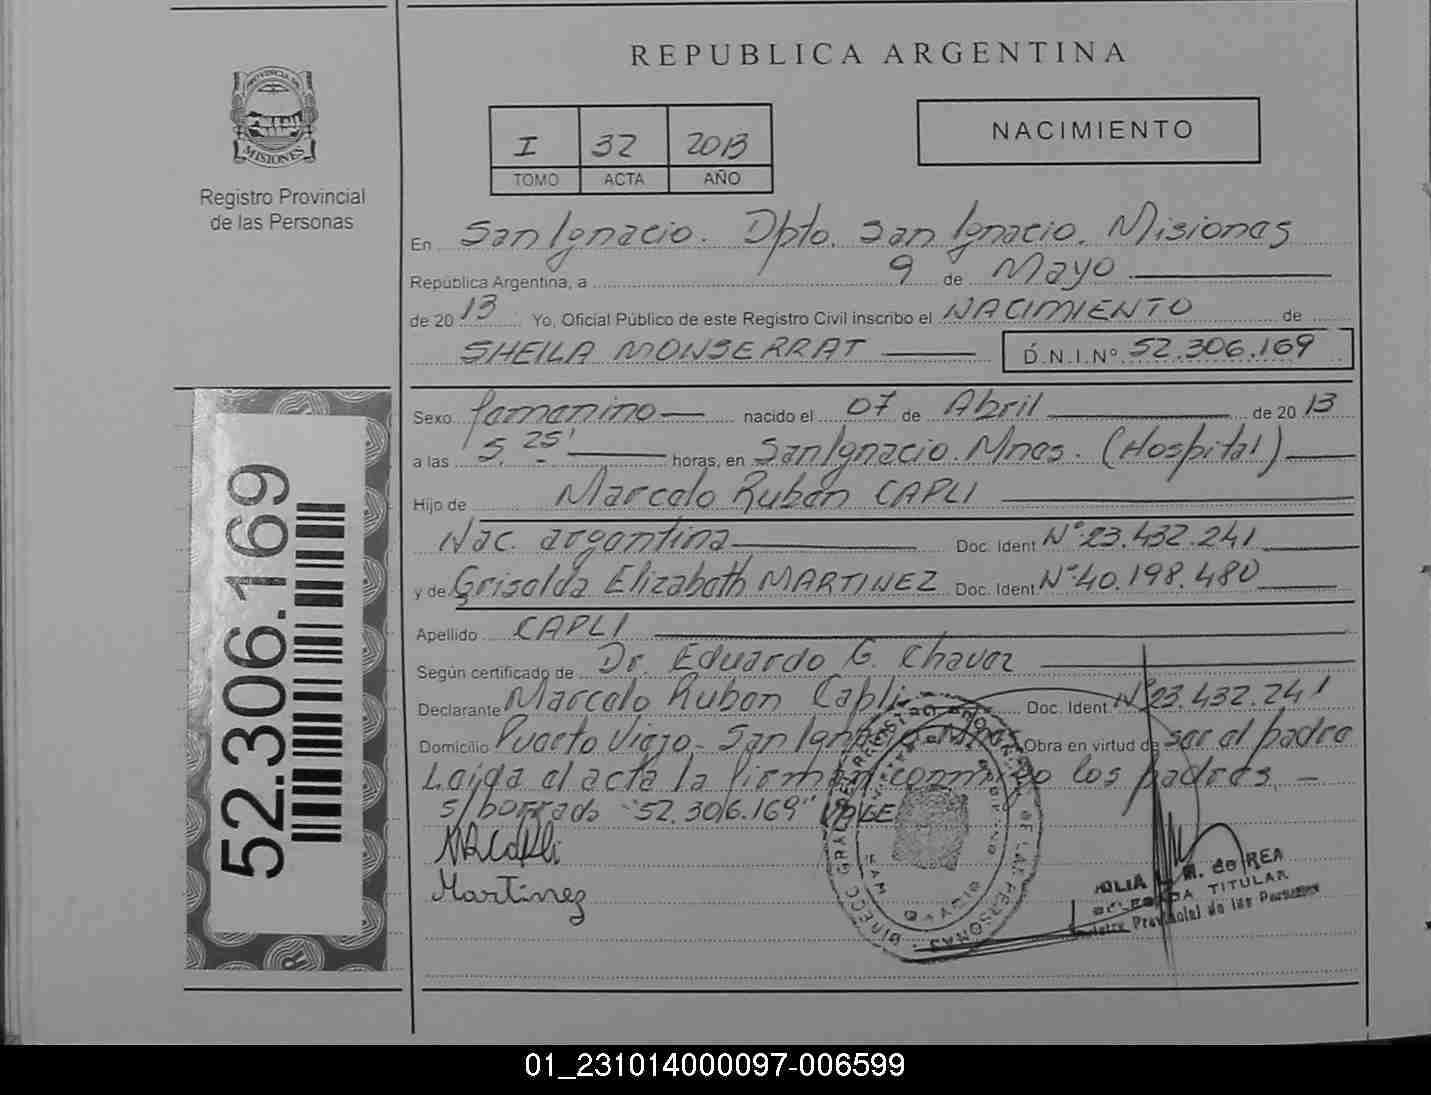 REPUBLICA ARGENTINA
PROVINCIA DE
MISIONES
Registro Provincial
de las Personas
I 32 2013
TOMO ACTA AÑO
NACIMIENTO
En San Ignacio. Dpto. San Ignacio. Misiones
República Argentina, a 9 de Mayo
de 20 13 Yo, Oficial Público de este Registro Civil inscribo el NACIMIENTO de
SHEILA MONSERRAT D.N.I.Nº 52.306.169
Sexo femenino nacido el 07 de Abril de 20 13
a las 5,25' horas, en San Ignacio. Mnes. (Hospital)
Hijo de Marcelo Ruben CAPLI
Nac. argentina Doc. Ident Nº 23.432.241
y de Griselda Elizabeth MARTINEZ Doc. Ident Nº 40.198.480
Apellido CAPLI
Según certificado de Dr. Eduardo G. Chavez
Declarante Marcelo Ruben Capli Doc. Ident Nº 23.432.241
Domicilio Puerto Viejo - San Ignacio Mnes Obra en virtud de ser el padre
Leída el acta la firman conmigo los padres, -
s/borrado "52.306.169" VALE
MRCapli
Martinez
52.306.169
DIRECC. GRAL. DEL REGISTRO PROVINCIAL DE LAS PERSONAS
JULIA M. de REA
DELEGADA TITULAR
Registro Provincial de las Personas
01_231014000097-006599